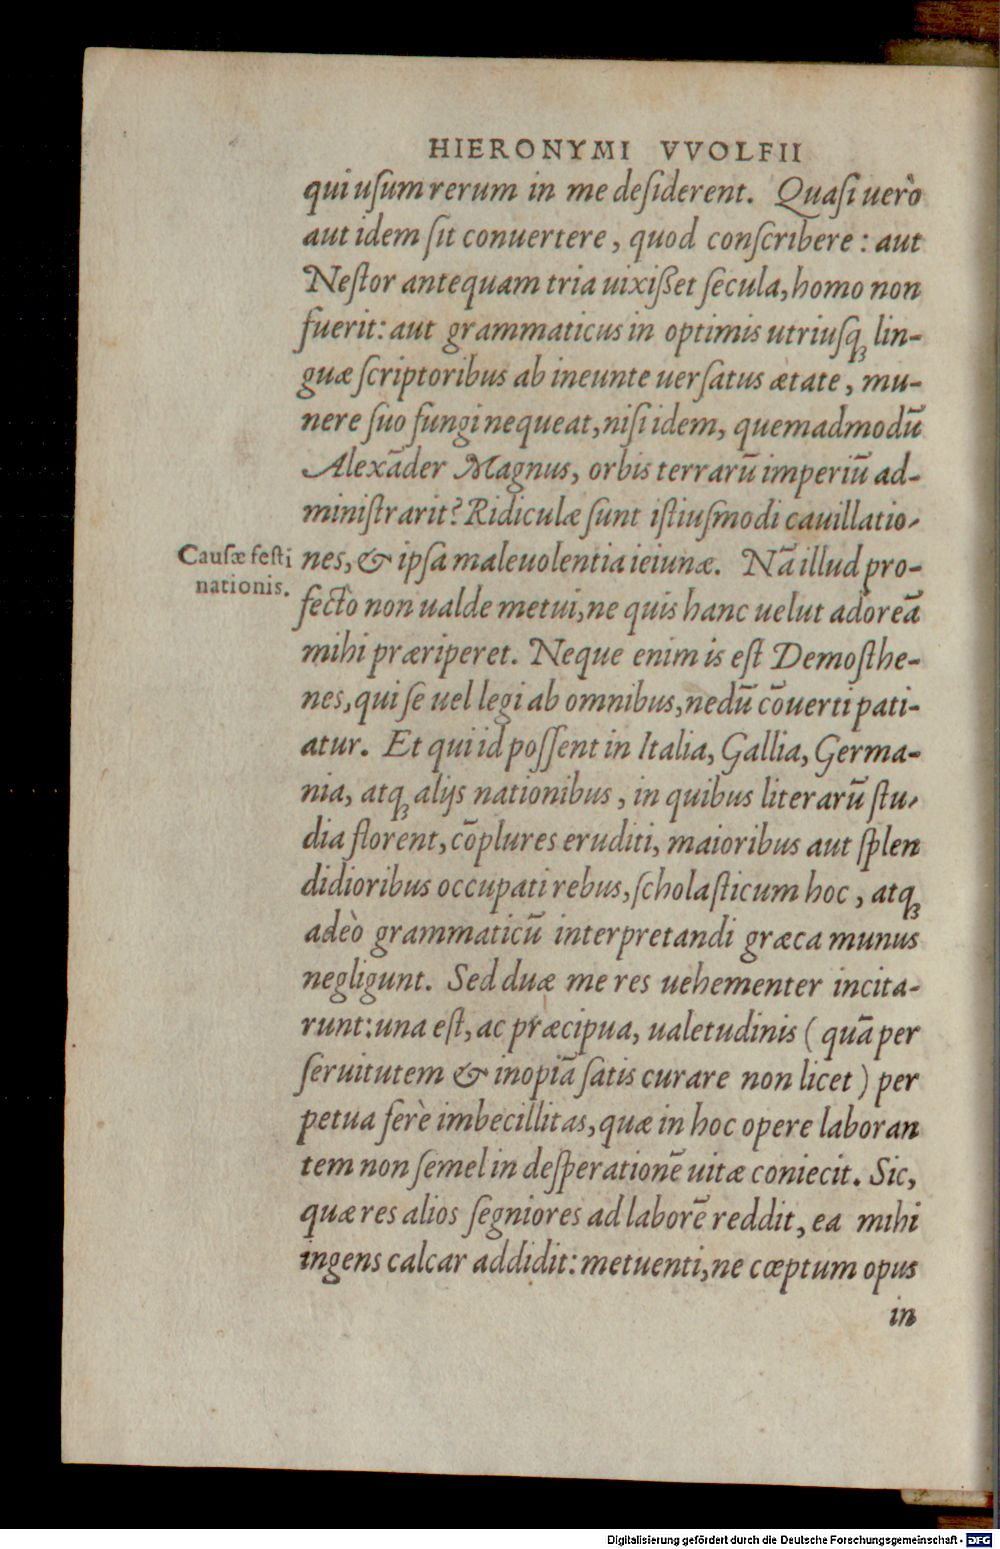 HIERONYMI VVOLFII
qui uſum rerum in me deſiderent. Quaſi uerò
aut idem ſit conuertere, quod conſcribere: aut
Neſtor antequam tria uixiſſet ſecula, homo non
fuerit: aut grammaticus in optimis utriuſq; lin-
guæ ſcriptoribus ab ineunte uerſatus ætate, mu-
nere ſuo fungi nequeat, niſi idem, quemadmodū
Alexāder Magnus, orbis terrarū imperiū ad-
miniſtrarit? Ridiculæ ſunt iſtiuſmodi cauillatio-
Cauſæ feſti
nationis.
nes, & ipſa maleuolentia ieiunæ. Nā illud pro-
fectò non ualde metui, ne quis hanc uelut adoreā
mihi præriperet. Neque enim is eſt Demoſthe-
nes, qui ſe uel legi ab omnibus, nedū cōuerti pati-
atur. Et qui id poſſent in Italia, Gallia, Germa-
nia, atq; alijs nationibus, in quibus literarū ſtu-
dia florent, cōplures eruditi, maioribus aut ſplen
didioribus occupati rebus, ſcholaſticum hoc, atq;
adeò grammaticū interpretandi græca munus
negligunt. Sed duæ me res uehementer incita-
runt: una eſt, ac præcipua, ualetudinis (quā per
ſeruitutem & inopiā ſatis curare non licet) per
petua ferè imbecillitas, quæ in hoc opere laboran
tem non ſemel in deſperationē uitæ coniecit. Sic,
quæ res alios ſegniores ad laborē reddit, ea mihi
ingens calcar addidit: metuenti, ne cœptum opus
in
Digitalisierung gefördert durch die Deutsche Forschungsgemeinschaft - DFG